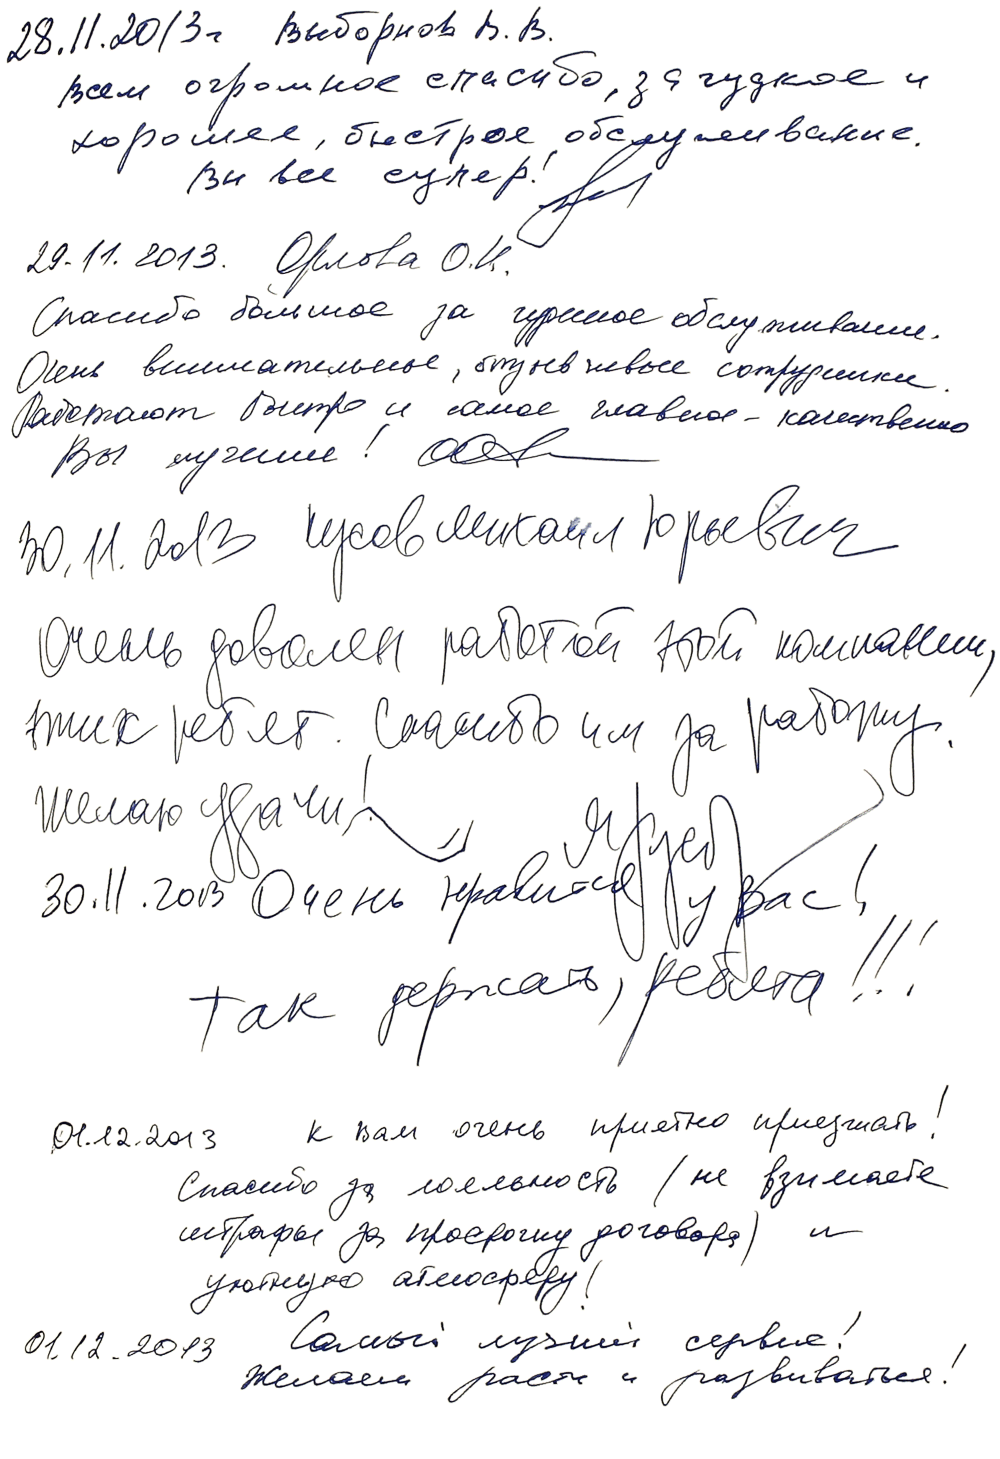 28.11.2013г Выборнов В.В.
Всем огромное спасибо, за чудкое и
хорошее, быстрое обслуживание.
Вы все супер!
29.11.2013. Орлова О.Н.
Спасибо большое за чудесное обслуживание.
Очень внимательные, отзывчивые сотрудники.
Работают быстро и самое главное - качественно
Вы лучшие!
30.11.2013 Михаил Юрьевич
Очень доволен работой этой компании,
этих ребят. Спасибо им за работу.
Желаю удачи!
30.11.2013 Очень нравится у вас!
Так держать, ребята!!!
01.12.2013 К вам очень приятно приезжать!
Спасибо за лояльность (не взимаете
штрафы за просрочку договора) и
уютную атмосферу!
01.12.2013 Самый лучший сервис!
Желаем расти и развиваться!